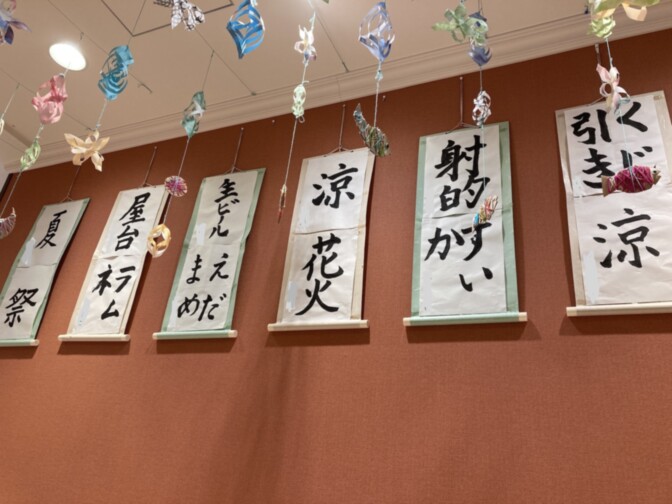 夏
祭
屋台
ラム
ネ
生ビル
えだ
まめ
涼
花火
射的
すい
か
くじ
引き
涼